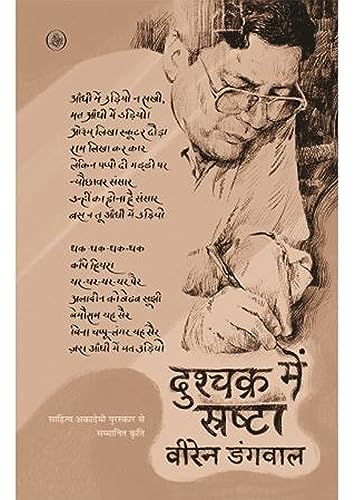 आँधी में उड़ियो न सखी,
मत आँधी में उड़ियो।
ओ३म लिखा स्कूटर दौड़ा
राम लिखा कर कार
लेकिन पप्पी दी गड्डी पर
न्यौछावर संसार
उन्हीं का होना है संसार
बस न तू आँधी में उड़ियो
धक-धक-धक-धक
काँपे हियरा
थर-थर-थर-थर पैर
अलादीन को बेढब सूझी
बेमौसम यह सैर
बिना चप्पू-लंगर यह सैर
ज़रा आँधी में मत उड़ियो
दुश्चक्र में
स्रष्टा
साहित्य अकादेमी पुरस्कार से
सम्मानित कृति
वीरेन डंगवाल